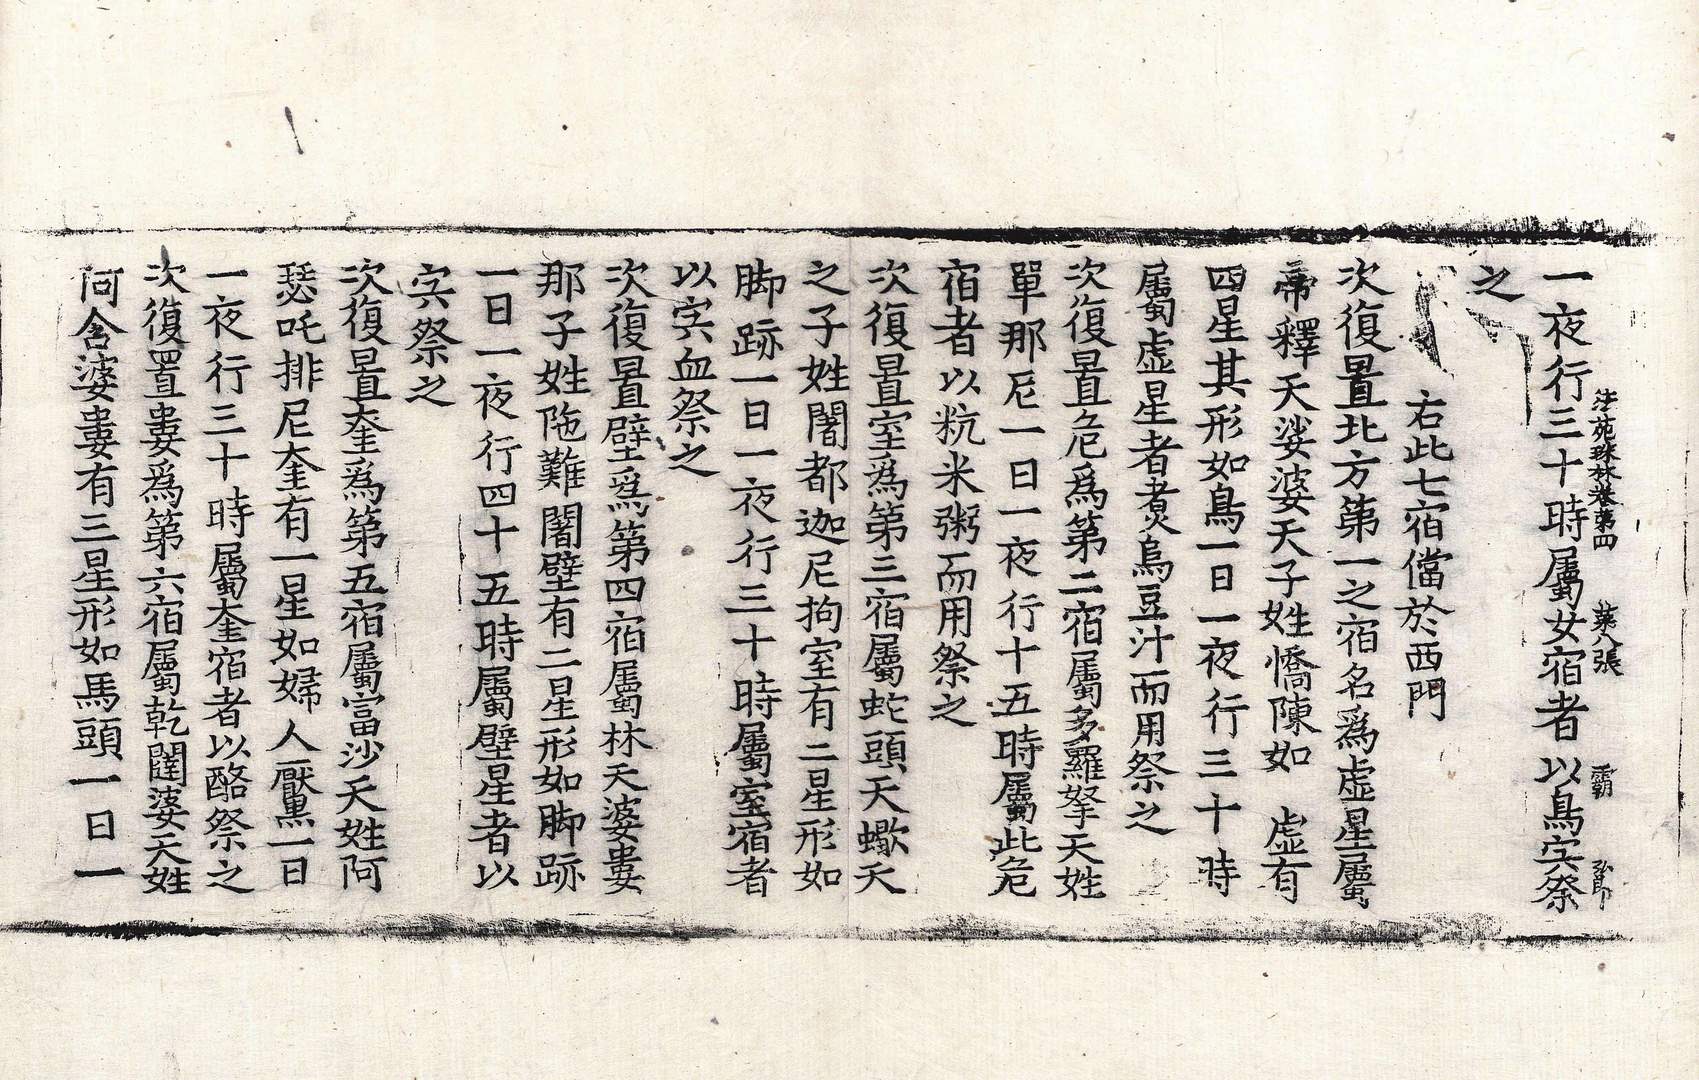 法苑珠林卷第四 第八張 霸 弘郎
一夜行三十時屬女宿者以鳥宍祭
之
右此七宿當於西門
次復置北方第一之宿名爲虛星屬
帝釋天娑婆天子姓憍陳如 虛有
四星其形如鳥一日一夜行三十時
屬虛星者煮烏豆汁而用祭之
次復置危爲第二宿屬多羅拏天姓
單那尼一日一夜行十五時屬此危
宿者以粇米粥而用祭之
次復置室爲第三宿屬蛇頭天蠍天
之子姓闍都迦尼拘室有二星形如
脚跡一日一夜行三十時屬室宿者
以宍血祭之
次復置壁爲第四宿屬林天婆婁
那子姓陁難闍壁有二星形如脚跡
一日一夜行四十五時屬壁星者以
宍祭之
次復置奎爲第五宿屬富沙天姓阿
瑟吒排尼奎有一星如婦人黶一日
一夜行三十時屬奎宿者以酪祭之
次復置婁爲第六宿屬乾闥婆天姓
阿含婆婁有三星形如馬頭一日一